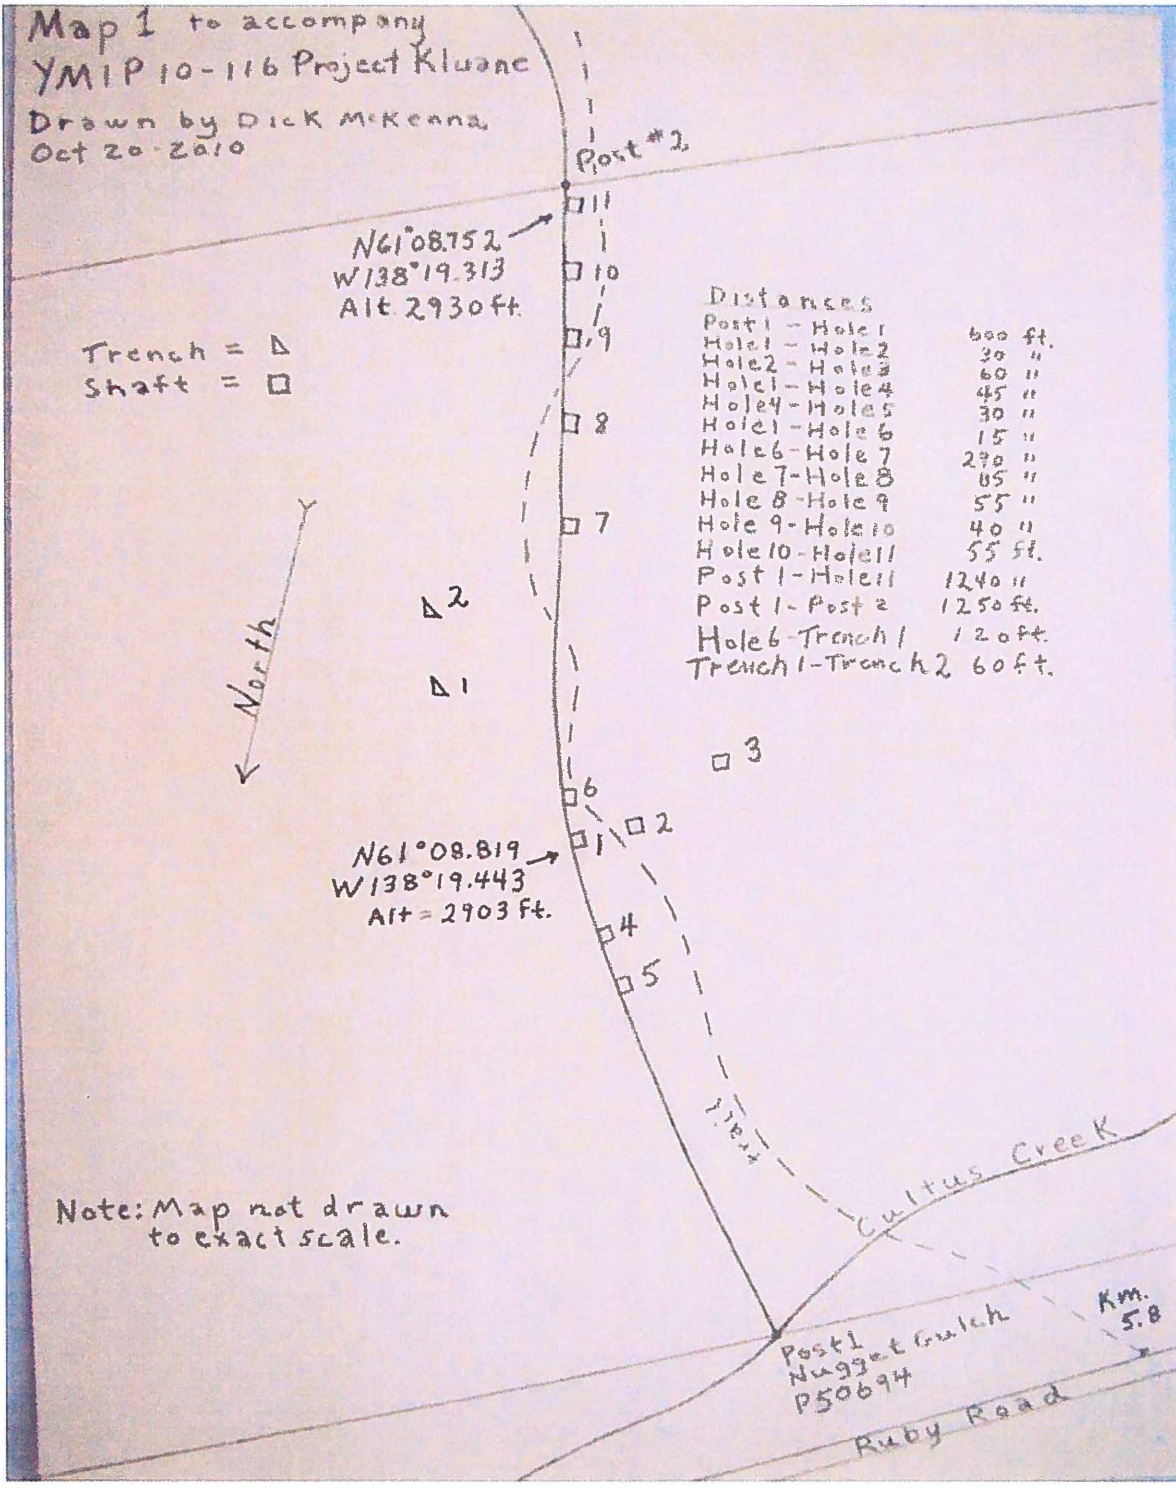 Map 1 to accompany
YMIP 10-116 Project Kluane
Drawn by Dick McKenna
Oct 20-2010
Post #2
11
N61°08.752
W138°19.313
Alt 2930 ft.
10
9
Trench =
Shaft =
8
7
Distances
Post 1 - Hole 1 600 ft.
Hole1 - Hole2 30 "
Hole2 - Hole3 60 "
Hole1 - Hole4 45 "
Hole4 - Hole5 30 "
Hole1 - Hole 6 15 "
Hole6 - Hole 7 "
Hole 7 - Hole 8 "
Hole 8 - Hole 9 55 "
Hole 9 - Hole10 40 "
Hole10 - Hole11 55 ft.
Post 1 - Hole11 1240 "
Post 1 - Post 2 1250 ft.
Hole6 - Trench 1 120 ft.
Trench 1 - Trench 2 60 ft.
North
2
1
3
6
2
1
N61°08.819
W138°19.443
Alt = 2903 ft.
4
5
trail
Cultus Creek
Note: Map not drawn
to exact scale.
Post 1
Nugget Gulch
P50694
Km.
5.8
Ruby Road